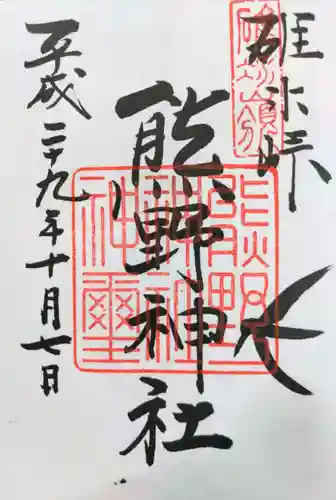 碓氷峠
熊野神社
平成二十九年十月七日
熊野神社神璽